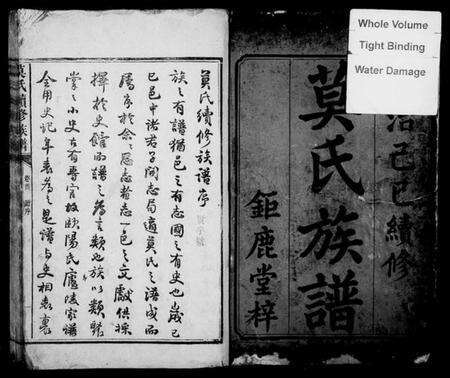 Whole Volume
Tight Binding
Water Damage
治己巳續修
莫氏族譜
鉅鹿堂梓
莫氏續修族譜序
族之有譜猶邑之有志國之有史也歲己
巳邑中諸君子開志局適莫氏之譜成而
屬序於余余愿志者志一邑之文獻俱採
擇於史館而譜之為言類也族以類聚
掌之小史古有專官故歐陽氏廬陵家譜
全用史記年表為之是譜與史相表裏
莫氏續修族譜
卷首